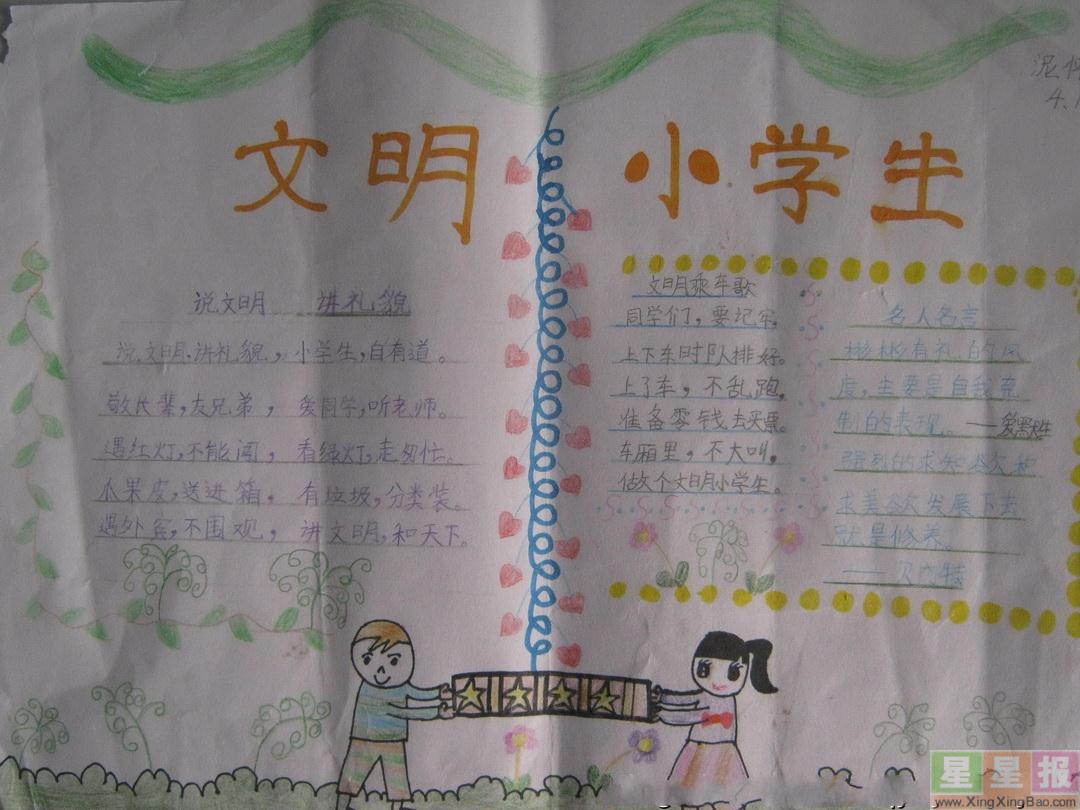 文明 小学生
说文明 讲礼貌
说文明,讲礼貌,小学生,自有道。
敬长辈,友兄弟,爱同学,听老师。
遇红灯,不能闯,看绿灯,走匆忙。
瓜果皮,送进箱,有垃圾,分类装。
遇外宾,不围观,讲文明,和天下。
文明乘车歌
同学们,要记牢,
上下车时队排好。
上了车,不乱跑,
准备零钱去买票。
车厢里,不大叫,
做个文明小学生。
名人名言
彬彬有礼的风
度,主要是自我克
制的表现。——爱默生
强烈的求知欲和
求美欲发展下去
就是修养。
星星报
www.XingXingBao.com